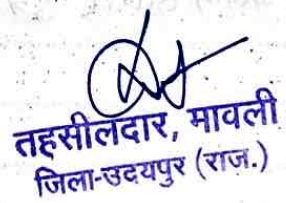 तहसीलदार, मावली
जिला-उदयपुर (राज.)